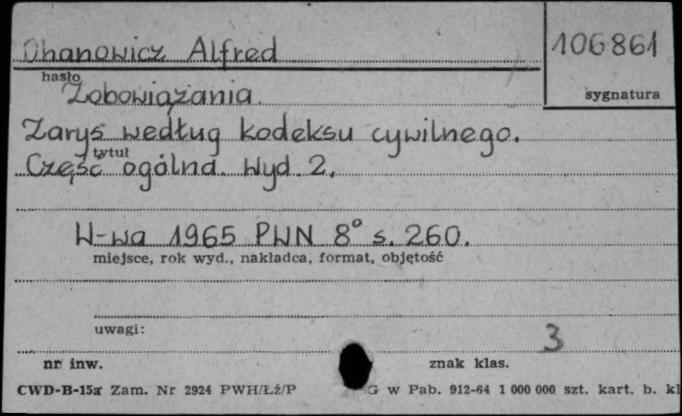 Ohanowicz Alfred
106861
hasło
sygnatura
Zobowiązania.
Zarys według kodeksu cywilnego.
tytuł
Część ogólna. Wyd. 2.
W-wa 1965 PWN 8° s. 260.
miejsce, rok wyd., nakładca, format, objętość
uwagi:
3
nr inw.
znak klas.
CWD-B-15a Zam. Nr 2924 PWH/Łź/P
G w Pab. 912-64 1 000 000 szt. kart. b. kl